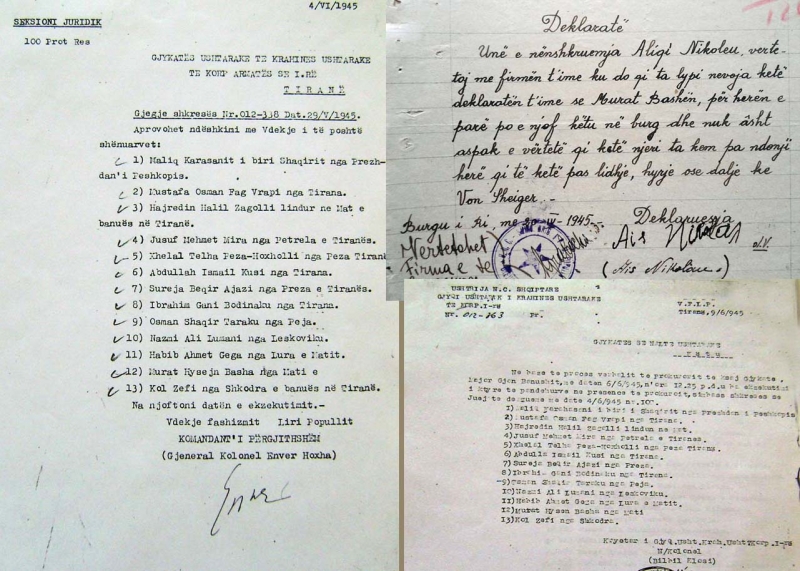 4/VI/1945
SEKSIONI JURIDIK
100 Prot Res
GJYKATËS USHTARAKE TE KRAHINES USHTARAKE
TE KORP ARMATËS SE I.RË
T I R A N Ë
Gjegje shkresës Nr.012-338 Dat.29/V/1945.
Aprovohet ndëshkini me Vdekje i të poshtë
shëmuarvet:
1) Maliq Karasanit i biri Shaqirit nga Prezh-
dan'i Peshkopis.
2) Mustafa Osman Fag Vrapi nga Tirana.
3) Hajredin Halil Zagolli lindur ne Mat e
banuës në Tiranë.
4) Jusuf Mehmet Mira nga Petrela e Tiranës.
5) Khelal Telha Peza-Hoxholli nga Peza Tiranë
6) Abdullah Ismail Kusi nga Tirana.
7) Sureja Beqir Ajazi nga Preza e Tiranës.
8) Ibrahim Gani Bodinaku nga Tirana.
9) Osman Shaqir Taraku nga Peja.
10) Nazmi Ali Lumani nga Leskoviku.
11) Habib Ahmet Gega nga Lura e Matit.
12) Murat Hyseja Basha nga Mati e
13) Kol Zefi nga Shkodra e banuës në Tiranë.
Na njoftoni datën e ekzekutimit.-
Vdekje fashizmit Liri Popullit
KOMANDANT'I PËRGJITHSHËM
(Gjeneral Kolonel Enver Hoxha)
Deklaratë
Unë e nënshkruemja Aliqi Nikoleu, verte-
toj me firmën t'ime ku do qi ta lypi nevoja ketë
deklaratën t'ime se Murat Bashën, për herën e
parë po e njof këtu në burg dhe nuk âsht
aspak e vërtetë qi ketë njëri ta kem pa ndenji
herë qi të ketë pas lidhje, hyrje ose dalje ke
Von Sheiger.-
Burgu i Ri, me 1945- Deklaruesja
Vertetohet
Firma e
(Ais Nikoleu)
USHTRIJA N.C. SHQIPTARE
GJYQI USHTARAK I KRAHINES USHTARAKE
TE KORP.I-rë
Nr. 012-363 Pr.
V.F.L.P.
Tirana, 9/6/1945
GJYKATES SE NALTE USHTARAKE
Ne base te proces verbalit te prokurorit te ksaj Gjykate,
Major Gjon Banushit, në daten 6/6/1945, n'ora 12.25 p.d. u ba ekzekutimi
i ktyre te pandehurve ne presence te prokurorit, simbas shkreses se
Juaj te dergume me date 4/6/1945 nr.100.
1) i biri i Shaqirit nga Preshdan i Peshkopis
2) Mustafa Osman Fag Vrapi nga Tirana.
3) Hajredin Halil Zagolli lindur ne Mat.
4) Jusuf Mehmet Mira nga Petrela e Tiranes
5) Khelal Telha Peza-Hoxholli nga Peza Tirane
6) Abdulla Ismail Kusi nga Tirana.
7) Sureja Beqir Ajazi nga Preza.
8) Ibrahim Gani Bodinaku nga Tirana.
9) Osman Shaqir Taraku nga Peja.
10) Nazmi Ali Lumani nga Leskoviku.
11) Habib Ahmet Gega nga Lura e Matit.
12) Murat Hysen Basha nga Mati
13) Kol Zefi nga Shkodra.
Kryetar i Gjyq.Usht.Krah.UshtTKorp.I-rë
N/Kolonel
(Bilbil Klosi)